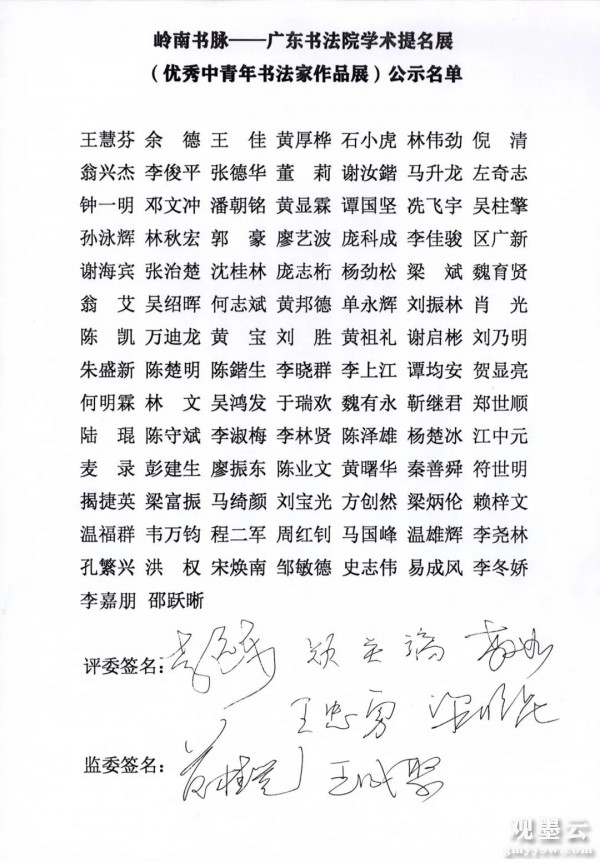 岭南书脉——广东书法院学术提名展
（优秀中青年书法家作品展）公示名单
王慧芬 余　德 王　佳 黄厚桦 石小虎 林伟劲 倪　清
翁兴杰 李俊平 张德华 董　莉 谢汝鍇 马升龙 左奇志
钟一明 邓文冲 潘朝铭 黄显霖 谭国坚 冼飞宇 吴柱擎
孙泳辉 林秋宏 郭　豪 廖艺波 庞科成 李佳骏 区广新
谢海宾 张治楚 沈桂林 庞志桁 杨劲松 梁　斌 魏育贤
翁　艾 吴绍晖 何志斌 黄邦德 单永辉 刘振林 肖　光
陈　凯 万迪龙 黄　宝 刘　胜 黄祖礼 谢启彬 刘乃明
朱盛新 陈楚明 陈鍇生 李晓群 李上江 谭均安 贺显亮
何明霖 林　文 吴鸿发 于瑞欢 魏有永 靳继君 郑世顺
陆　琨 陈守斌 李淑梅 李林贤 陈泽雄 杨楚冰 江中元
麦　录 彭建生 廖振东 陈业文 黄曙华 秦善舜 符世明
揭捷英 梁富振 马绮颜 刘宝光 方创然 梁炳伦 赖梓文
温福群 韦万钧 程二军 周红钊 马国峰 温雄辉 李尧林
孔繁兴 洪　权 宋焕南 邹敏德 史志伟 易成风 李冬娇
李嘉朋 邵跃晰
评委签名：
王忠勇
监委签名：
观墨云
gmyyow.com